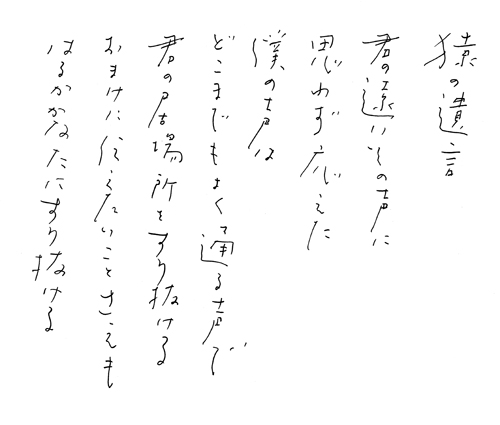 猿の遺言
君の遠いその声に
思わず応えた
僕の声は
どこまでもよく通る声で
君の居場所をすり抜ける
おまけに伝えたいことさえも
はるかかなたにすり抜ける